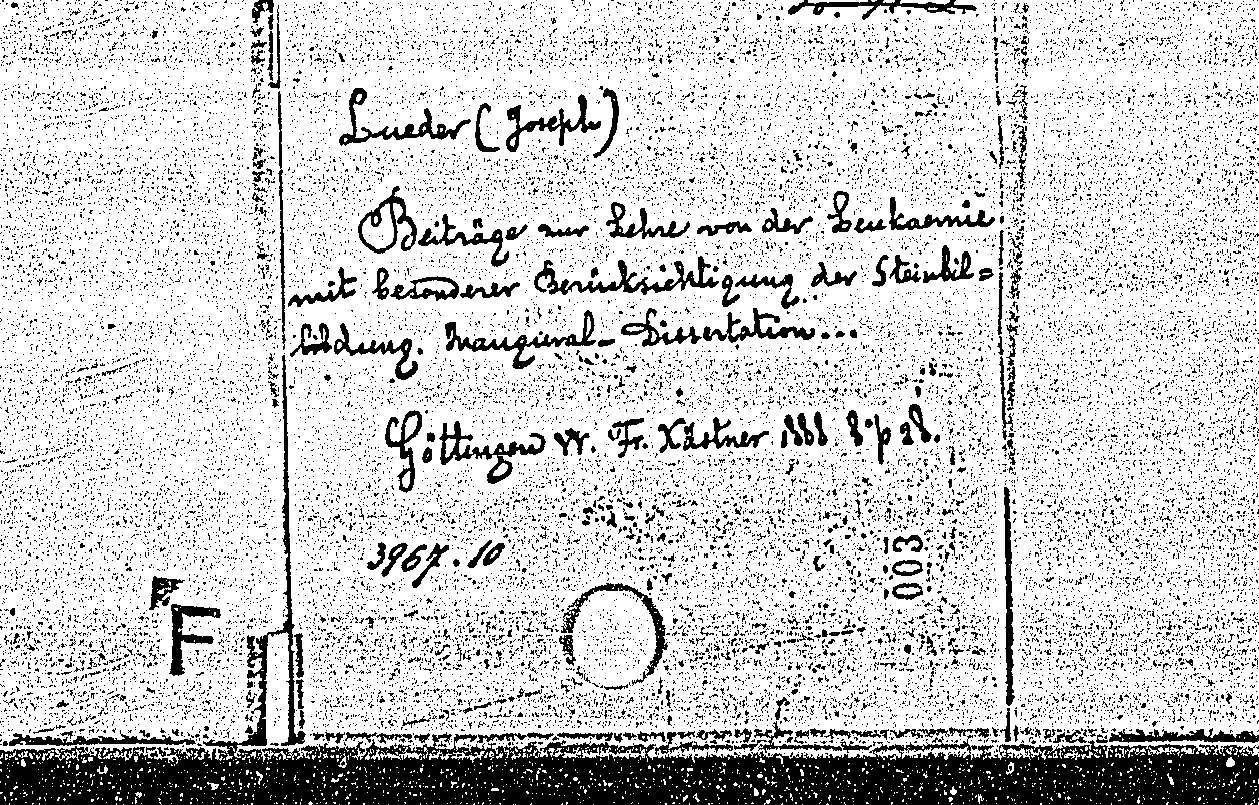 Lueder (Joseph)
Beiträge zur Lehre von der Leukaemie
mit besonderer Berücksichtigung der Steinbil=
bildung. Inaugural-Dissertation...
Göttingen W. Fr. Kästner 1888 8° p 28.
3967.10
003
F